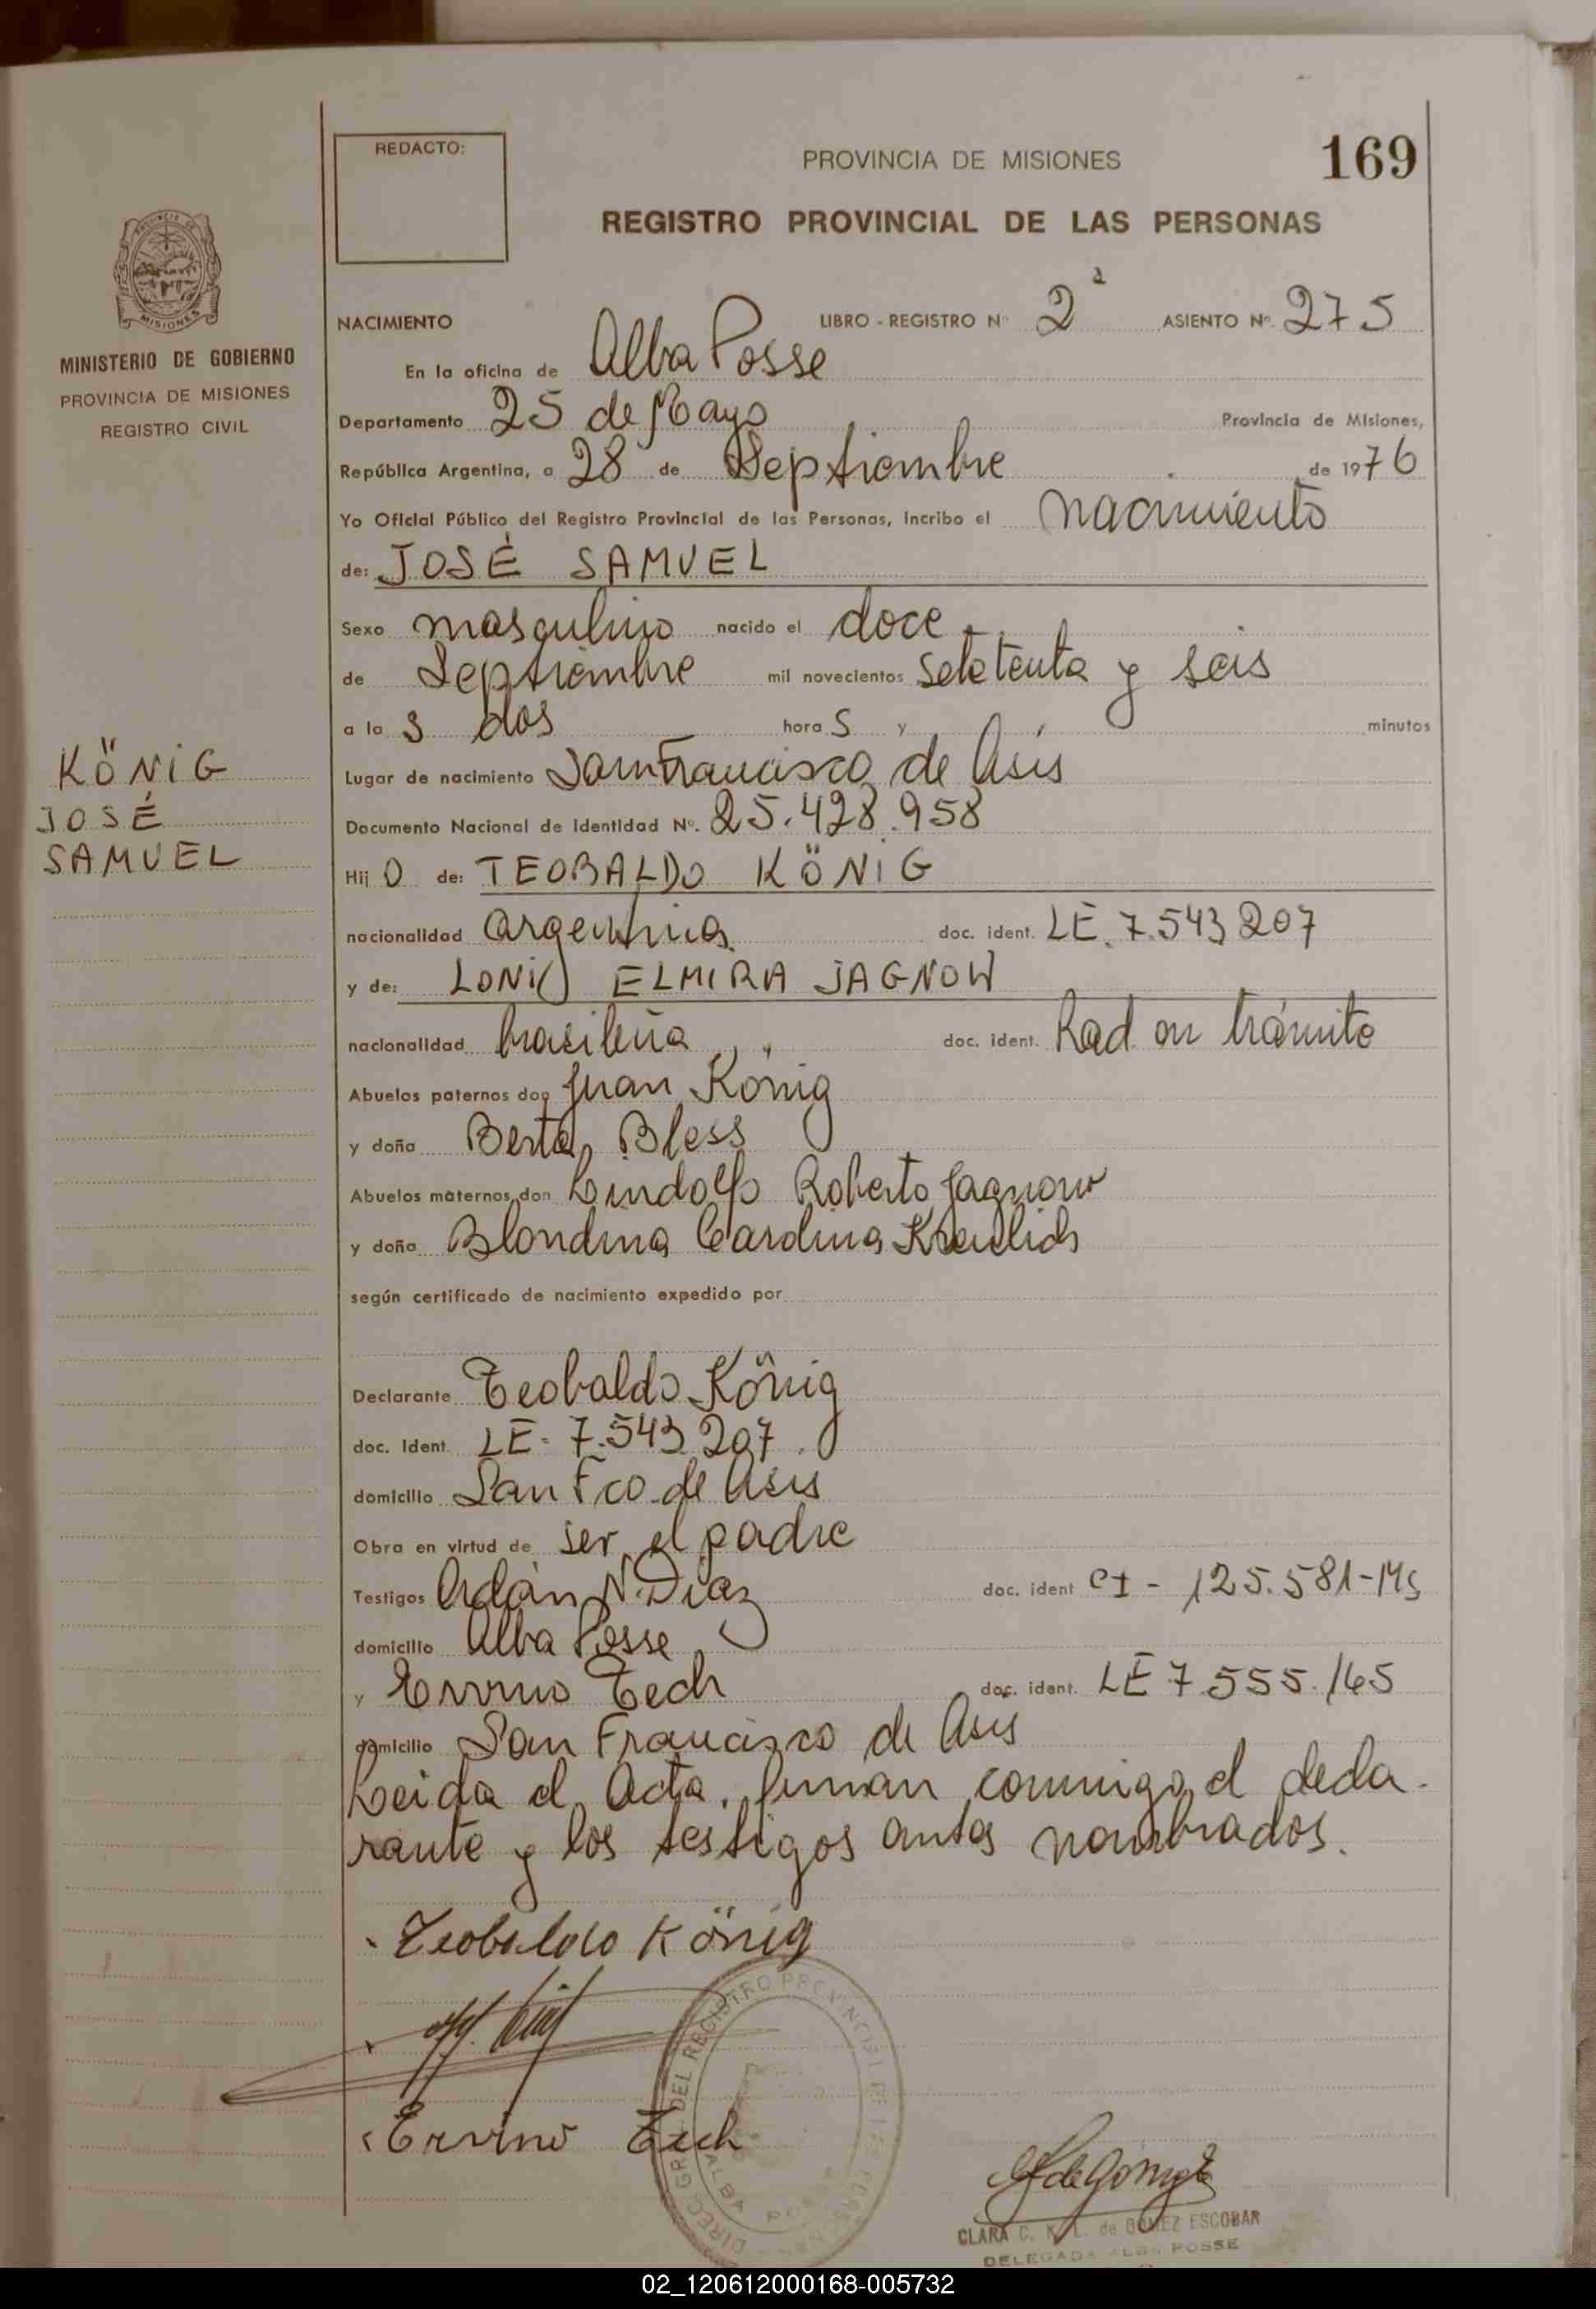 169
REDACTO:
PROVINCIA DE MISIONES
REGISTRO PROVINCIAL DE LAS PERSONAS
MISIONES
MINISTERIO DE GOBIERNO
PROVINCIA DE MISIONES
REGISTRO CIVIL
KÖNIG
JOSÉ
SAMUEL
NACIMIENTO LIBRO - REGISTRO Nº 2ª ASIENTO Nº 275
En la oficina de Alba Posse
Departamento 25 de Mayo Provincia de Misiones,
República Argentina, a 28 de Septiembre de 1976
Yo Oficial Público del Registro Provincial de las Personas, incribo el nacimiento
de: JOSÉ SAMUEL
Sexo masculino nacido el doce
de Septiembre mil novecientos setetenta y seis
a la s dos hora s y minutos
Lugar de nacimiento San Francisco de Asís
Documento Nacional de Identidad Nº. 25.428.958
Hij o de: TEOBALDO KÖNIG
nacionalidad argentina doc. ident. LE. 7.543 207
y de: ELMIRA JAGNOW
nacionalidad brasileña doc. ident. Rad. en trámite
Abuelos paternos don Juan König
y doña Berta Bless
Abuelos maternos don Lindolfo Roberto Jagnow
y doña Blondina Carolina
según certificado de nacimiento expedido por
Declarante Teobaldo König
doc. ident. LE- 7.543 207.
domicilio San Fco. de Asís
Obra en virtud de ser el padre
Testigos Adán N. Díaz doc. ident CI - 125.581-Ms
domicilio Alba Posse
y Ervino Tech doc. ident. LE 7.555.165
domicilio San Francisco de Asís
Leida el Acta, firman conmigo el decla-
rante y los testigos antes nombrados.
Teobaldo König
Ervino Tech
DIREC. GRAL. DEL REGISTRO PROVINCIAL DE LAS PERSONAS
ALBA POSSE
CLARA C. K. L. de GOMEZ ESCOBAR
DELEGADA ALBA POSSE
02_120612000168-005732